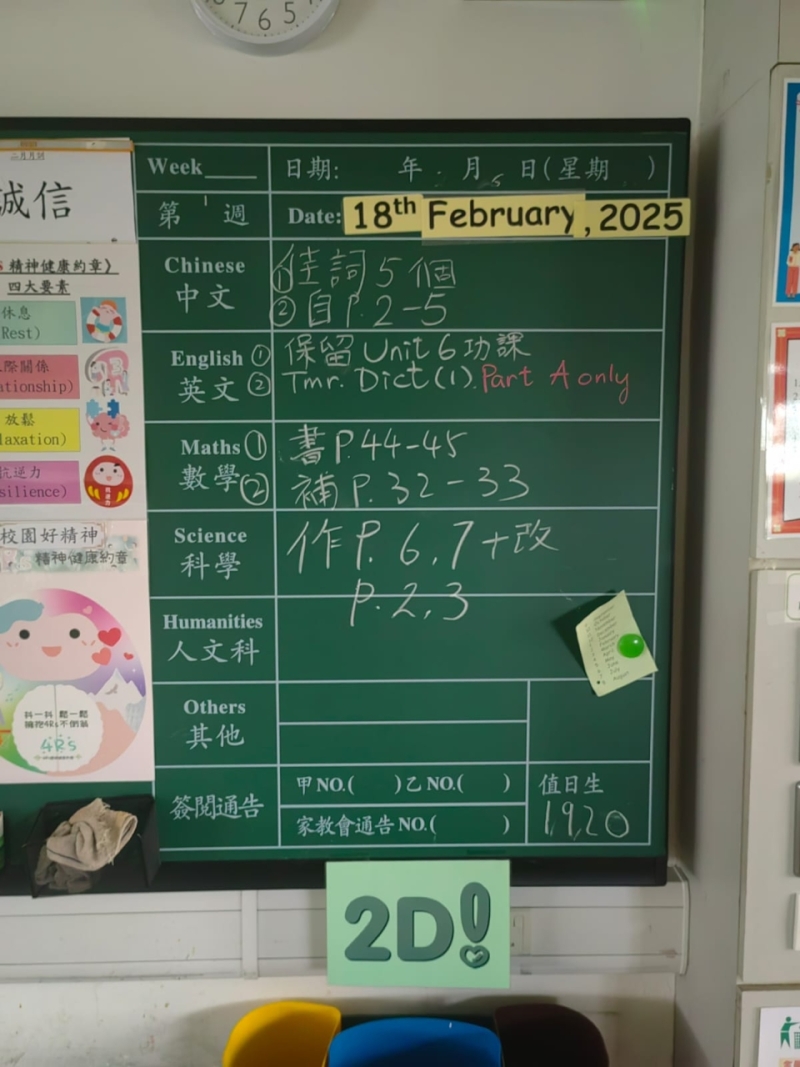 7 6 5
誠信
精神健康約章》
四大要素
休息
Rest)
際關係
ationship)
放鬆
laxation)
抗逆力
silience)
校園好精神
精神健康約章
抖一抖 鬆一鬆
4Rs
Week____ 日期: 年 月 日(星期 )
第 週 Date: 18th February, 2025
Chinese 中文
①佳詞5個
②自P.2-5
English 英文
① 保留Unit 6功課
② Tmr. Dict(1). Part A only
Maths 數學
① 書P.44-45
② 補P.32-33
Science 科學
作P.6,7+改
P.2,3
Humanities 人文科
Others 其他
簽閱通告
甲NO.( )乙NO.( )
家教會通告NO.( )
值日生
19,20
2D!